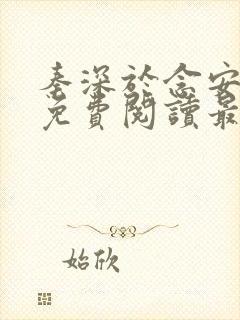 秦深於念安
免費閱讀最
始欣